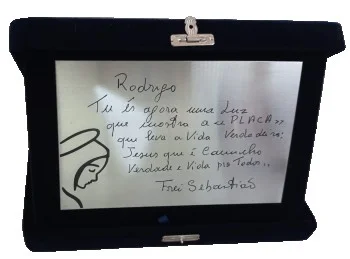 Rodrygo
Tu és agora uma Luz
que mostra a "PLACA"
que leva a Vida Verdadeira:
Jesus que é Caminho
Verdade e Vida pra Todos..
Frei Sebastião